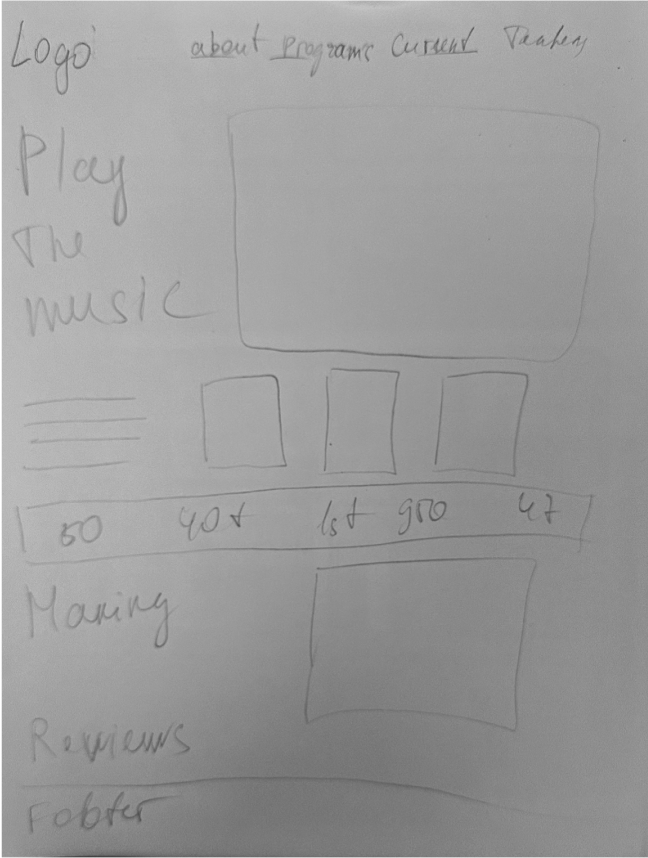 Logo about programs Current
Play
The
music
50 40+ 1st 950 47
Making
Reviews
Footer